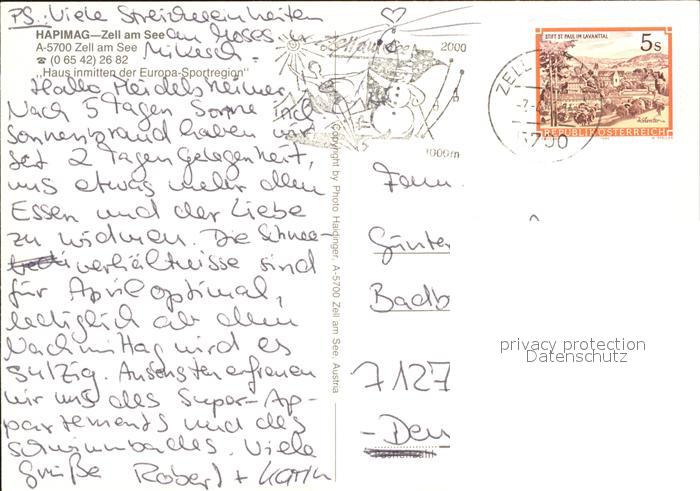 PS: Viele Streicheleinheiten
an Moses
Mikesch.
HAPIMAG—Zell am See
A-5700 Zell am See
☎ (0 65 42) 26 82
„Haus inmitten der Europa-Sportregion"
Hallo Heidelsheimer,
Nach 5 Tagen Sonne incl
Sonnenbrand haben wir
seit 2 Tagen Gelegenheit,
uns etwas mehr dem
Essen und der Liebe
zu widmen. Die Schnee-
verhältnisse sind
für April optimal,
lediglich ab dem
Nachmittag wird es
sulzig. Ansonsten erfreuen
wir uns des Super-Ap-
partements und des
Schwimmbades. Viele
Grüße Robert + Karin
Copyright by Photo Haidinger, A-5700 Zell am See, Austria
Zell am See
2000
1000m
STIFT ST. PAUL IM LAVANTTAL
5 S
REPUBLIK ÖSTERREICH
ZELL
5700
Fam.
Günter
Badb
7127
-Den
Postleitzahl
privacy protection
Datenschutz